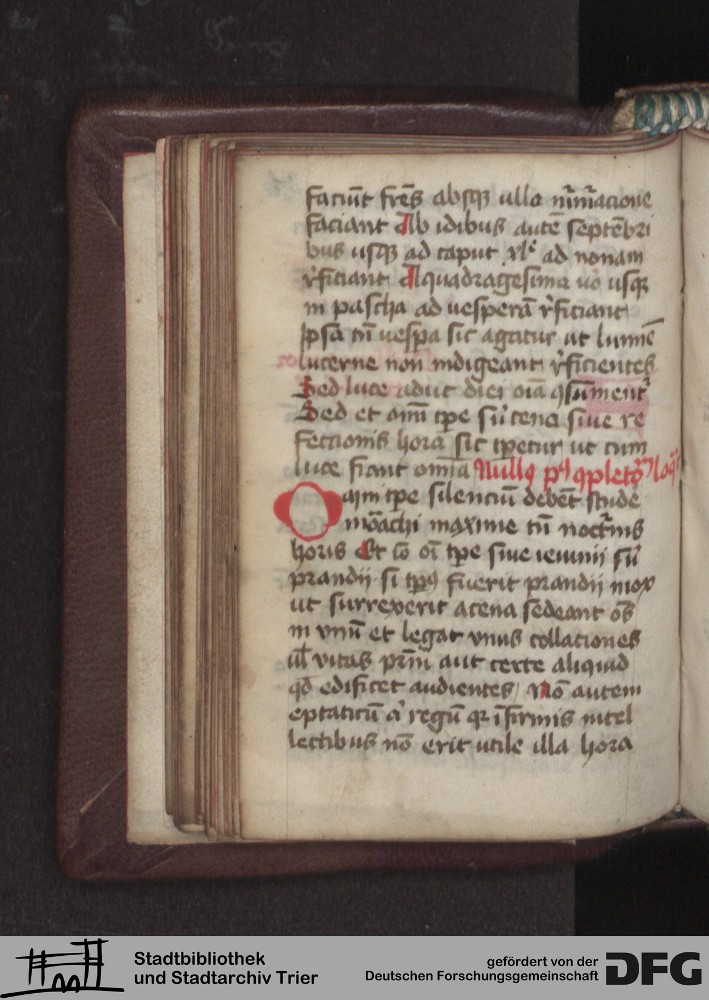 faciūt frēs absqʒ ulla mͥmͣacione
faciant Ab idibus autē septēbri
bus usqʒ ad caput xlͤ ad nonam
rͤficiant A quadragesima uͦ usqʒ
in pascha ad uesperā rͤficiant
Ipsa tn̄ uespa sic agatur ut lumīe
lucerne non indigeant rͤficientes
Sed luce aduc diei oīa ꝯsūment᷑
Sed et omī tp̄e siͧ cena siue re
fectionis hora sic tp̄etur ut cum
luce fiant omīa Nullꝰ pꝰ ꝯpletoͬ loqͣr
Omni tp̄e silenciū debēt studē
mōachi maxime tn̄ nocturnis
horis Et iō oī tp̄e siue ieiunij siͧ
prandij si tp̄ꝰ fuerit prandij mox
ut surrexerit a cena sedeant oēs
in vnū et legat vnus collationes
ul̄ vitas prm̄ aut certe aliquid
qd̄ edificet audientes Nō autem
eptaticū aͭ regū qͥ īfirmis intel
lectibus nō erit utile illa hora
Stadtbibliothek
und Stadtarchiv Trier
gefördert von der
Deutschen Forschungsgemeinschaft
DFG